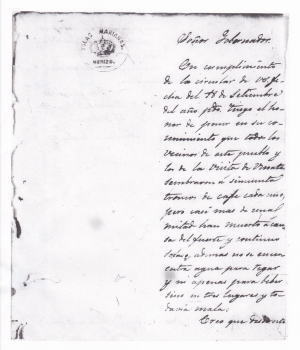 ISLAS MARIANAS
MERIZO.
Señor Gobernador.
En cumplimiento
de la circular de VS. fe
cha del 18 de Setiembre
del año pdo. tengo el ho
nor de poner en su co
nocimiento que todos los
vecinos de este pueblo y
los de la Visita de Umata
sembraron á cincuenta
troncos de café cada uno,
pero casi mas de
mitad han muerto á cau
sa del fuerte y continuo
sol, ademas no se encu
entra agua para regar
y ni apenas para beber
sino en tres lugares y to
davia mala;
Creo que